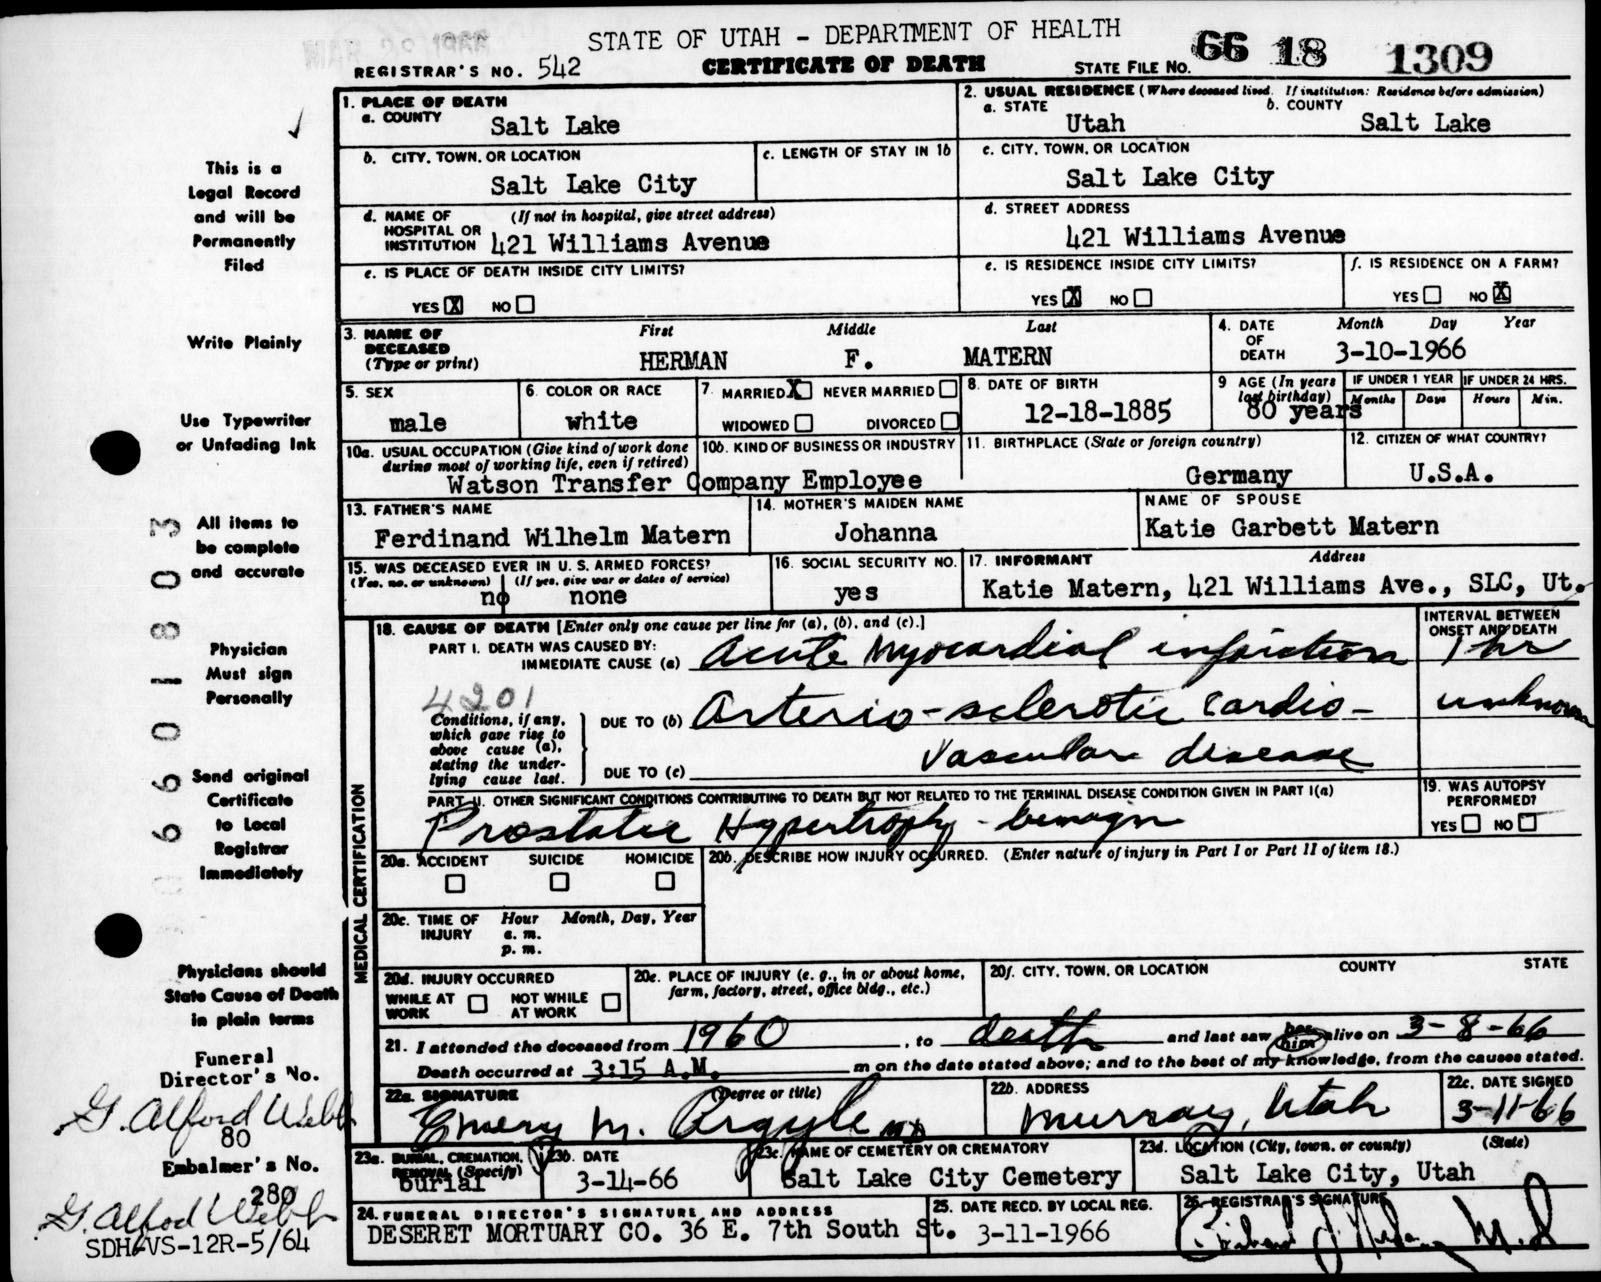 STATE OF UTAH - DEPARTMENT OF HEALTH
REGISTRAR'S NO. 542 CERTIFICATE OF DEATH STATE FILE NO. 66 18 1309
1. PLACE OF DEATH
a. COUNTY Salt Lake
2. USUAL RESIDENCE (Where deceased lived. If institution: Residence before admission)
a. STATE Utah b. COUNTY Salt Lake
b. CITY, TOWN, OR LOCATION Salt Lake City
c. LENGTH OF STAY IN 1b
c. CITY, TOWN, OR LOCATION Salt Lake City
d. NAME OF HOSPITAL OR INSTITUTION (If not in hospital, give street address) 421 Williams Avenue
d. STREET ADDRESS 421 Williams Avenue
e. IS PLACE OF DEATH INSIDE CITY LIMITS?
YES X NO
e. IS RESIDENCE INSIDE CITY LIMITS?
YES X NO
f. IS RESIDENCE ON A FARM?
YES NO X
3. NAME OF DECEASED (Type or print)
First Middle Last
HERMAN F. MATERN
4. DATE OF DEATH Month Day Year
3-10-1966
5. SEX male
6. COLOR OR RACE white
7. MARRIED X NEVER MARRIED
WIDOWED DIVORCED
8. DATE OF BIRTH 12-18-1885
9 AGE (In years last birthday) 80 years
IF UNDER 1 YEAR Months Days
IF UNDER 24 HRS. Hours Min.
10a. USUAL OCCUPATION (Give kind of work done during most of working life, even if retired)
10b. KIND OF BUSINESS OR INDUSTRY
Watson Transfer Company Employee
11. BIRTHPLACE (State or foreign country) Germany
12. CITIZEN OF WHAT COUNTRY? U.S.A.
13. FATHER'S NAME Ferdinand Wilhelm Matern
14. MOTHER'S MAIDEN NAME Johanna
NAME OF SPOUSE Katie Garbett Matern
15. WAS DECEASED EVER IN U. S. ARMED FORCES?
(Yes, no, or unknown) (If yes, give war or dates of service)
no none
16. SOCIAL SECURITY NO. yes
17. INFORMANT Address
Katie Matern, 421 Williams Ave., SLC, Ut.
MEDICAL CERTIFICATION
18. CAUSE OF DEATH [Enter only one cause per line for (a), (b), and (c).]
INTERVAL BETWEEN ONSET AND DEATH
PART I. DEATH WAS CAUSED BY:
IMMEDIATE CAUSE (a) Acute Myocardial infarction 1 hr
4201
Conditions, if any, which gave rise to above cause (a), stating the underlying cause last.
DUE TO (b) Arterio-sclerotic cardio- unknown
vascular disease
DUE TO (c)
PART II. OTHER SIGNIFICANT CONDITIONS CONTRIBUTING TO DEATH BUT NOT RELATED TO THE TERMINAL DISEASE CONDITION GIVEN IN PART I(a)
Prostatic Hypertrophy - benign
19. WAS AUTOPSY PERFORMED?
YES NO
20a. ACCIDENT SUICIDE HOMICIDE
20b. DESCRIBE HOW INJURY OCCURRED. (Enter nature of injury in Part I or Part II of item 18.)
20c. TIME OF INJURY Hour Month, Day, Year
a. m.
p. m.
20d. INJURY OCCURRED
WHILE AT WORK NOT WHILE AT WORK
20e. PLACE OF INJURY (e. g., in or about home, farm, factory, street, office bldg., etc.)
20f. CITY, TOWN, OR LOCATION COUNTY STATE
21. I attended the deceased from 1960, to death and last saw her him alive on 3-8-66
Death occurred at 3:15 A.M. m on the date stated above; and to the best of my knowledge, from the causes stated.
22a. SIGNATURE (Degree or title)
Emery M. Argyle MD
22b. ADDRESS Murray, Utah
22c. DATE SIGNED 3-11-66
23a. BURIAL, CREMATION, REMOVAL (Specify) burial
23b. DATE 3-14-66
23c. NAME OF CEMETERY OR CREMATORY Salt Lake City Cemetery
23d. LOCATION (City, town, or county) (State)
Salt Lake City, Utah
24. FUNERAL DIRECTOR'S SIGNATURE AND ADDRESS
DESERET MORTUARY CO. 36 E. 7th South St.
25. DATE RECD. BY LOCAL REG. 3-11-1966
26. REGISTRAR'S SIGNATURE
This is a
Legal Record
and will be
Permanently
Filed
Write Plainly
Use Typewriter
or Unfading Ink
All items to
be complete
and accurate
Physician
Must sign
Personally
Send original
Certificate
to Local
Registrar
Immediately
Physicians should
State Cause of Death
in plain terms
Funeral
Director's No.
G. Alford Webb
80
Embalmer's No.
280
G. Alford Webb
SDH-VS-12R-5/64